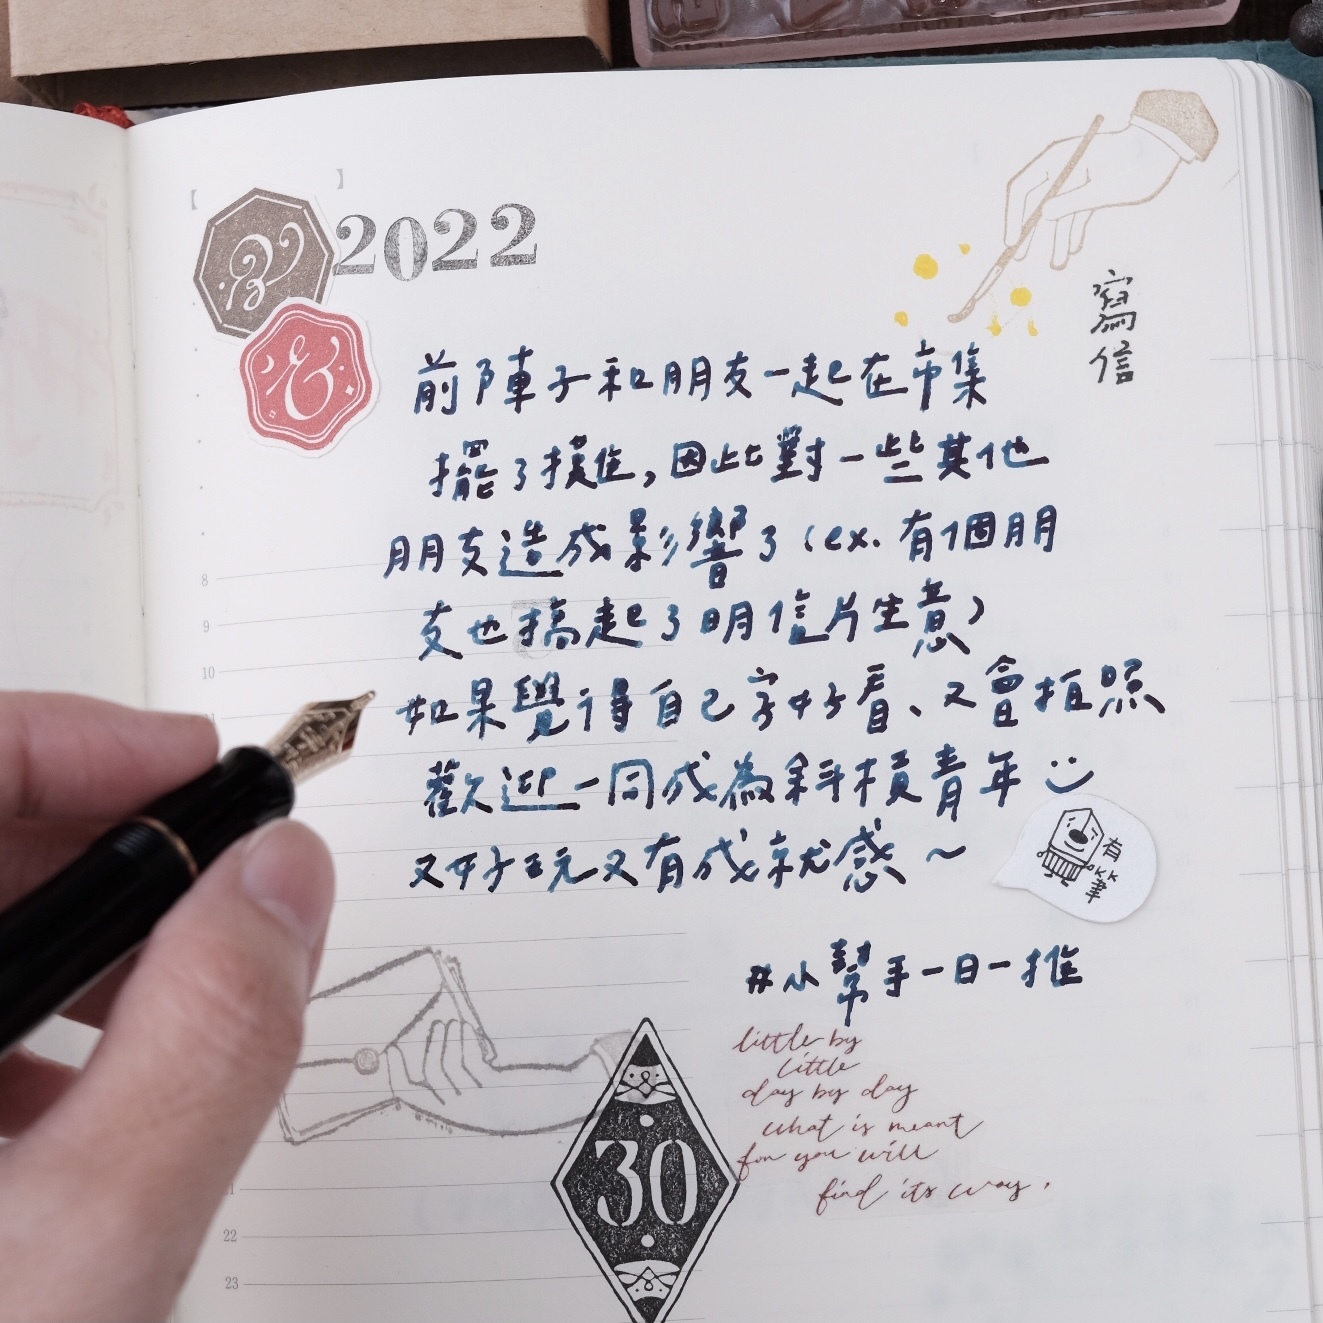 2022
寫信
前陣子和朋友一起在市集
擺了攤位,因此對一些其他
朋友造成影響了(ex.有個朋
友也搞起了明信片生意)
如果覺得自己字好看、又會拍照
歡迎一同成為斜槓青年
又好玩又有成就感~
有筆
#小幫手一日一推
little by
little
day by day
what is meant
for you will
find its way.
30
8
9
10
22
23